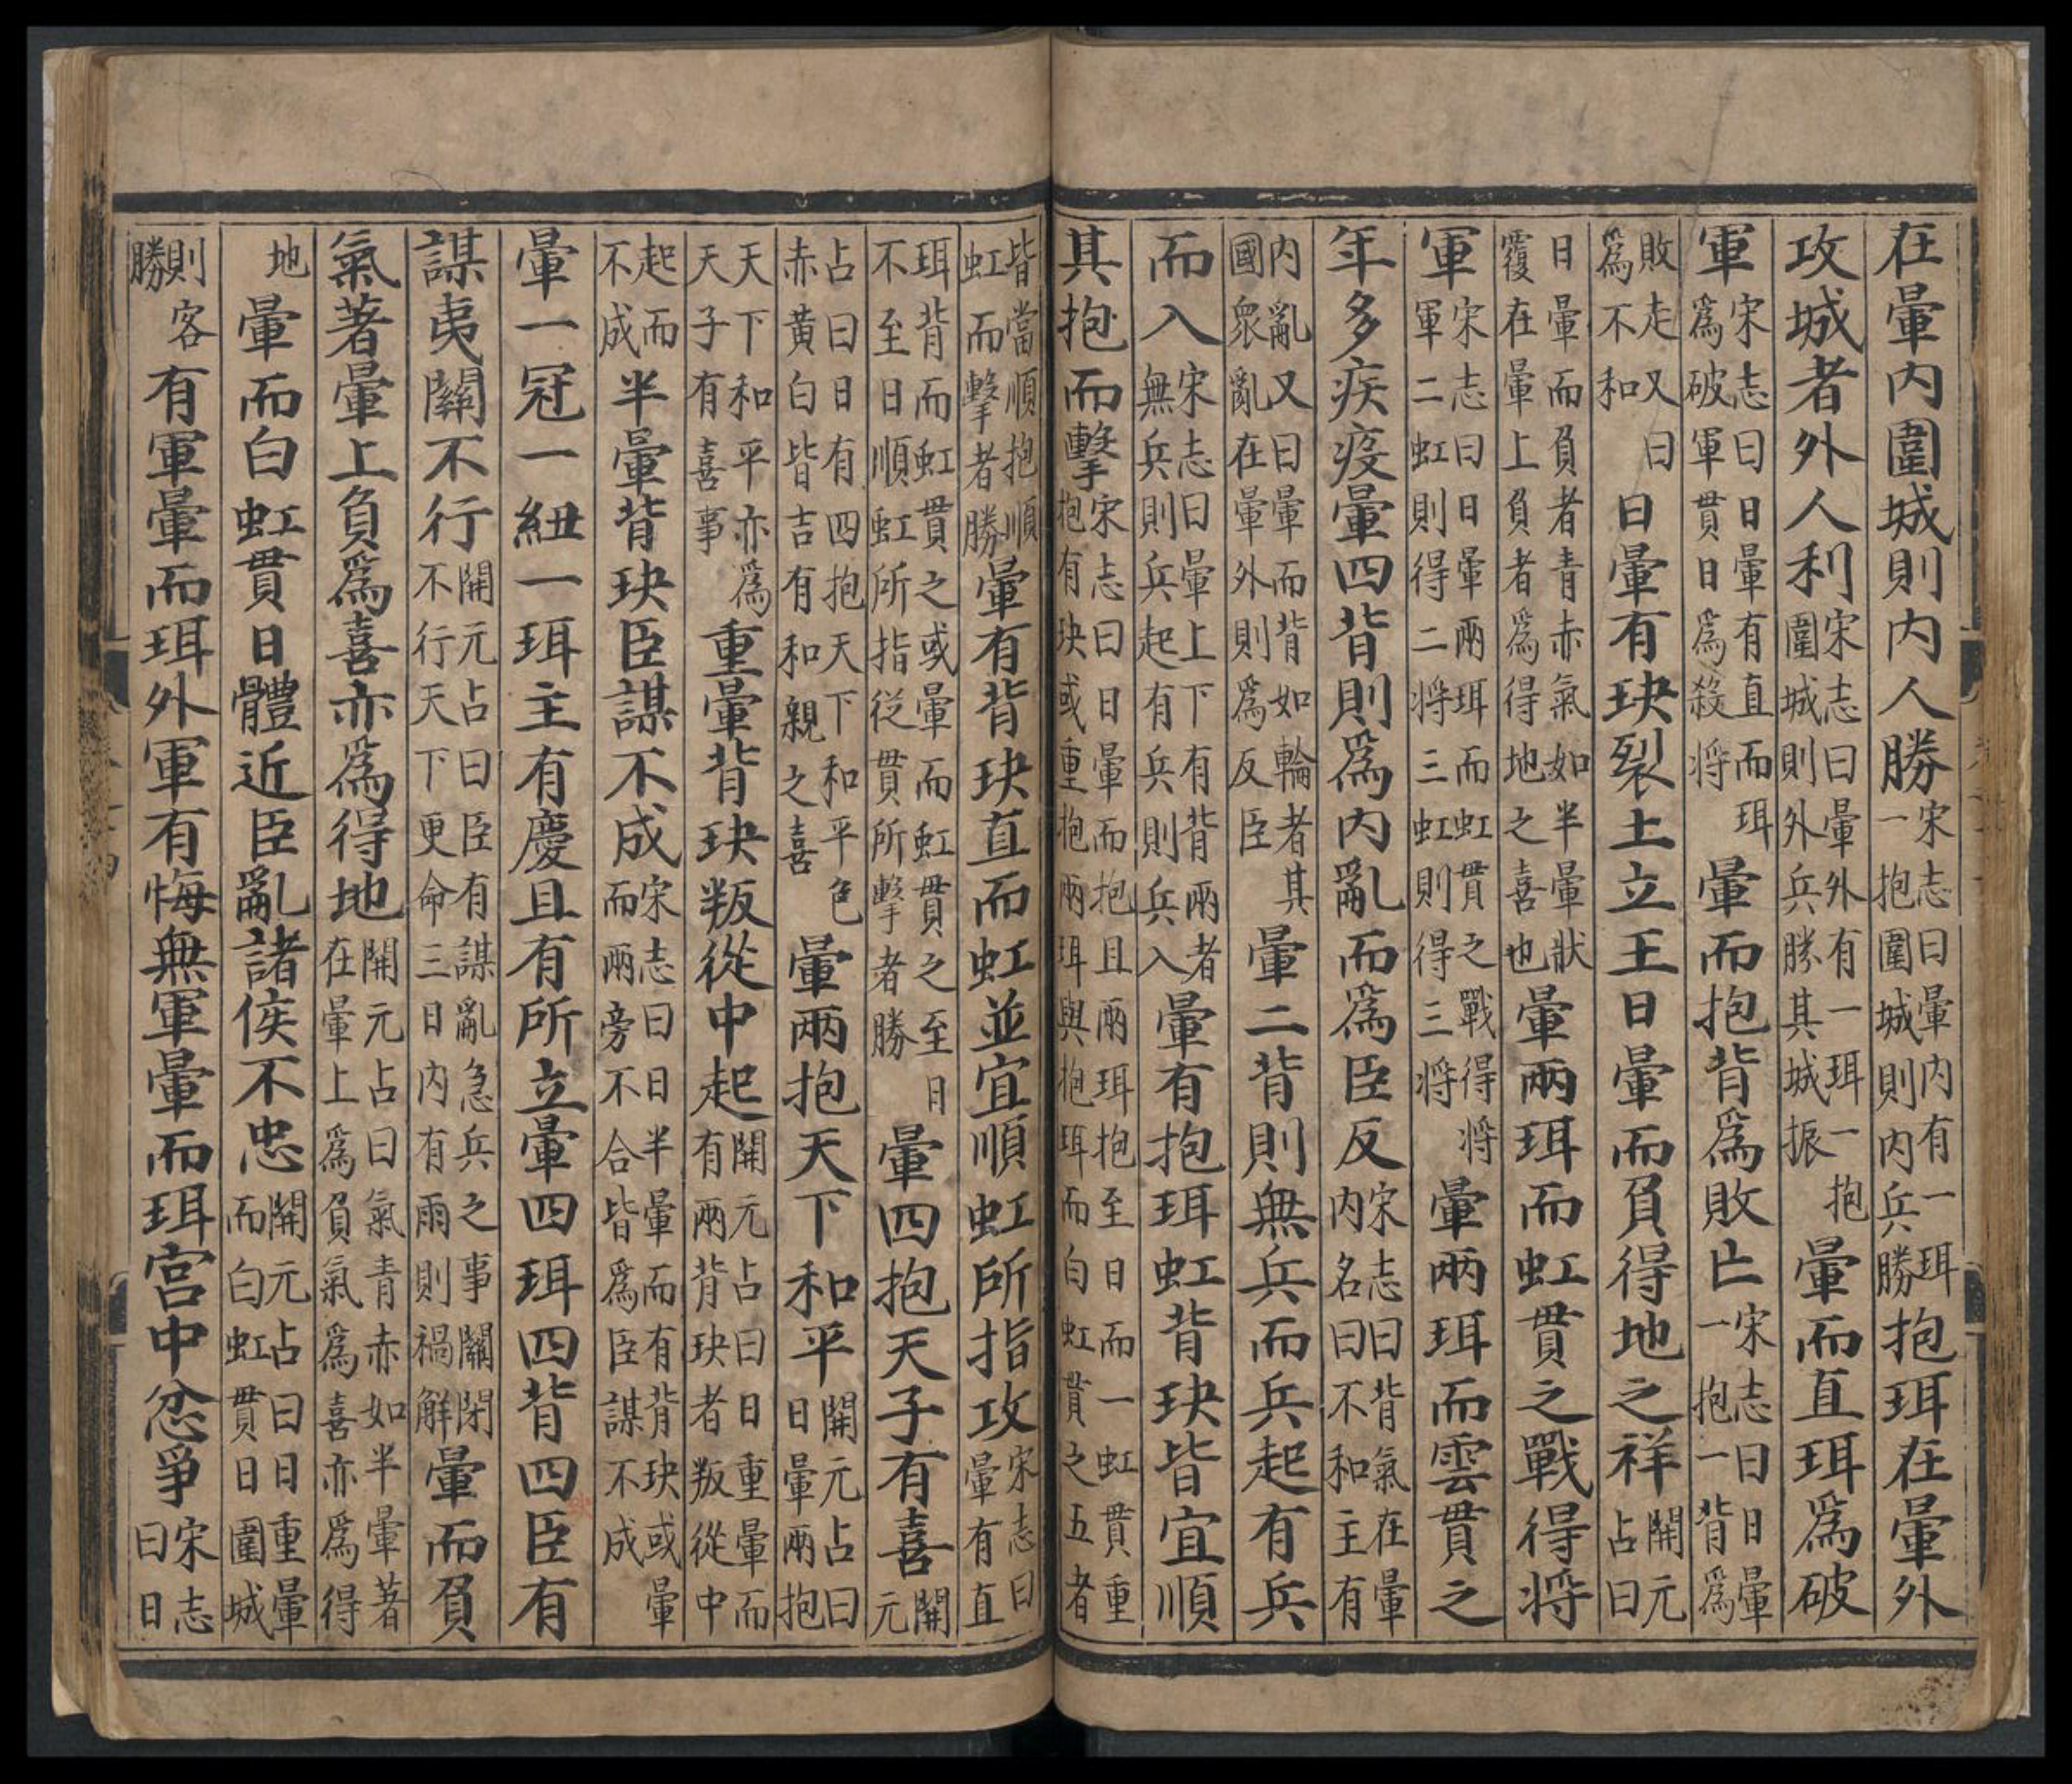 在暈内圍城則内人勝宋志曰暈内有一珥一抱圍城則内兵勝抱珥在暈外
攻城者外人利宋志曰暈外有一珥一抱圍城則外兵勝其城振暈而直珥爲破
軍宋志曰日暈有直而珥爲破軍貫日爲殺將暈而抱背爲敗亡宋志曰日暈一抱一背爲
敗走又曰爲不和日暈有玦裂土立王日暈而負得地之祥開元占曰
日暈而負者青赤氣如半暈狀覆在暈上負者爲得地之喜也暈兩珥而虹貫之戰得將
軍宋志曰日暈兩珥而虹貫之戰得將軍二虹則得二將三虹則得三將暈兩珥而雲貫之
年多疾疫暈四背則爲内亂而爲臣反宋志曰背氣在暈内名曰不和主有
内亂又曰暈而背如輪者其國衆亂在暈外則爲反臣暈二背則無兵而兵起有兵
而入宋志曰暈上下有背兩者無兵則兵起有兵則兵入暈有抱珥虹背玦皆宜順
其抱而擊宋志曰日暈而抱且兩珥抱至日而一虹貫重抱有玦或重抱兩珥與抱珥而白虹貫之五者
皆當順抱順虹而擊者勝暈有背玦直而虹並宜順虹所指攻宋志曰暈有直
珥背而虹貫之或暈而虹貫之至日不至日順虹所指從貫所擊者勝暈四抱天子有喜開元
占曰日有四抱天下和平色赤黄白皆吉有和親之喜暈兩抱天下和平開元占曰日暈兩抱
天下和平亦爲天子有喜事重暈背玦叛從中起開元占曰日重暈而有兩背玦者叛從中
起而不成半暈背玦臣謀不成宋志曰日半暈而有背玦或暈而兩旁不合皆爲臣謀不成
暈一冠一紐一珥主有慶且有所立暈四珥四背四臣有
謀夷關不行開元占曰臣有謀亂急兵之事關閉不行天下更命三日内有雨則禍解暈而負
氣著暈上負爲喜亦爲得地開元占曰氣青赤如半暈著在暈上爲負氣爲喜亦爲得
地暈而白虹貫日體近臣亂諸侯不忠開元占曰日重暈而白虹貫日圍城
則客勝有軍暈而珥外軍有悔無軍暈而珥宫中忿爭宋志曰日